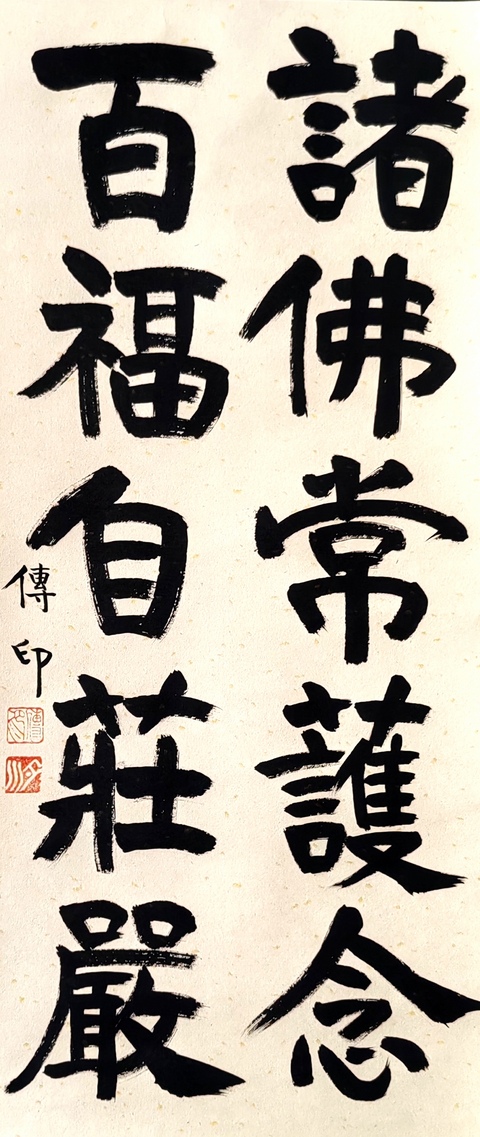 諸佛常護念
百福自莊嚴
傳印